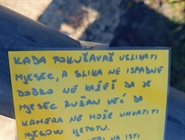 KADA POKUŠAVAŠ USLIKATI
MJESEC, A SLIKA NE ISPADNE
DOBRO NE KAŽEŠ DA JE
MJESEC RUŽAN VEĆ DA
KAMERA NE MOŽE UHVATITI
NJEGOVU LJEPOTU.
NA ISTI